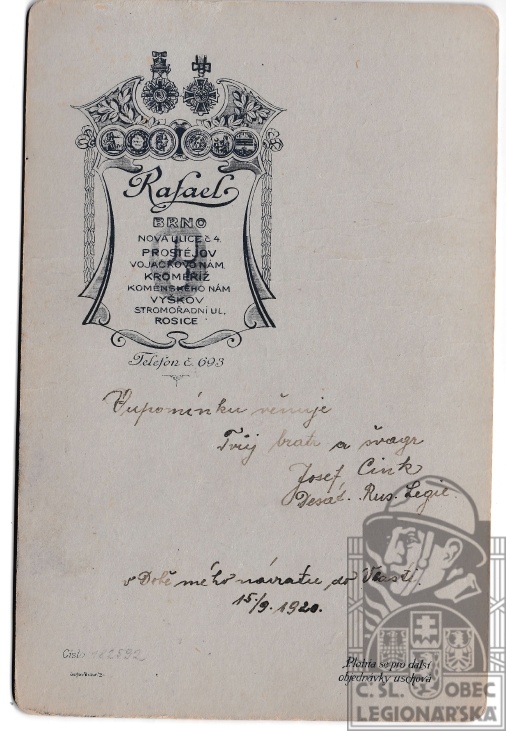 Rafael
BRNO
NOVÁ ULICE č 4.
PROSTĚJOV
VOJÁČKOVO NÁM.
KROMĚŘÍŽ
KOMENSKÉHO NÁM
VYŠKOV
STROMOŘADNÍ UL.
ROSICE
Telefon č. 693
Vupomínku věnuje
Tvůj bratr a švagr
Josef Cink
Desát. Rus. Legie.
v Době mého návratu do Vlasti.
15./9. 1920.
Číslo
Platna se pro další
objednávky uschová
Č. SL. OBEC
LEGIONÁŘSKÁ